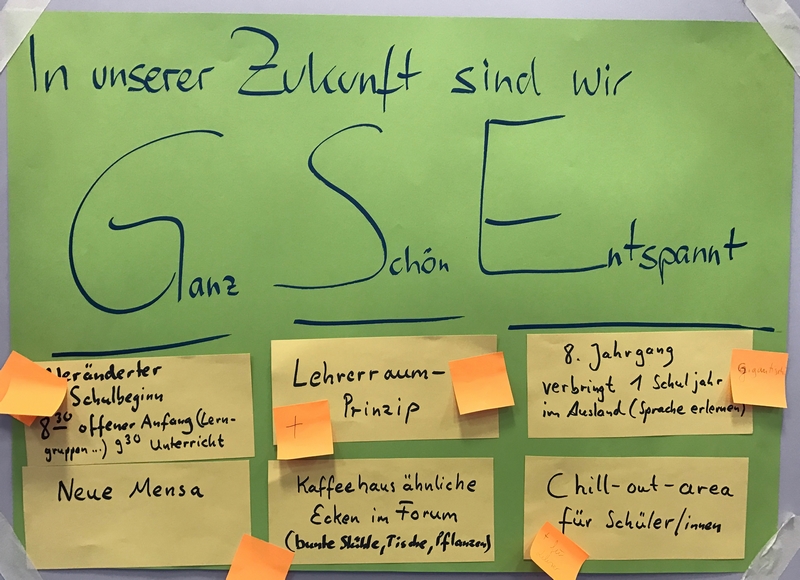 In unserer Zukunft sind wir
Ganz Schön Entspannt
Veränderter
Schulbeginn
8³⁰ offener Anfang (Lern-
gruppen...) 9³⁰ Unterricht
Lehrerraum-
Prinzip
+
8. Jahrgang
verbringt 1 Schuljahr
im Ausland (Sprache erlernen)
Neue Mensa
Kaffeehaus ähnliche
Ecken im Forum
(bunte Stühle, Tische, Pflanzen)
Chill-out-area
für Schüler/innen